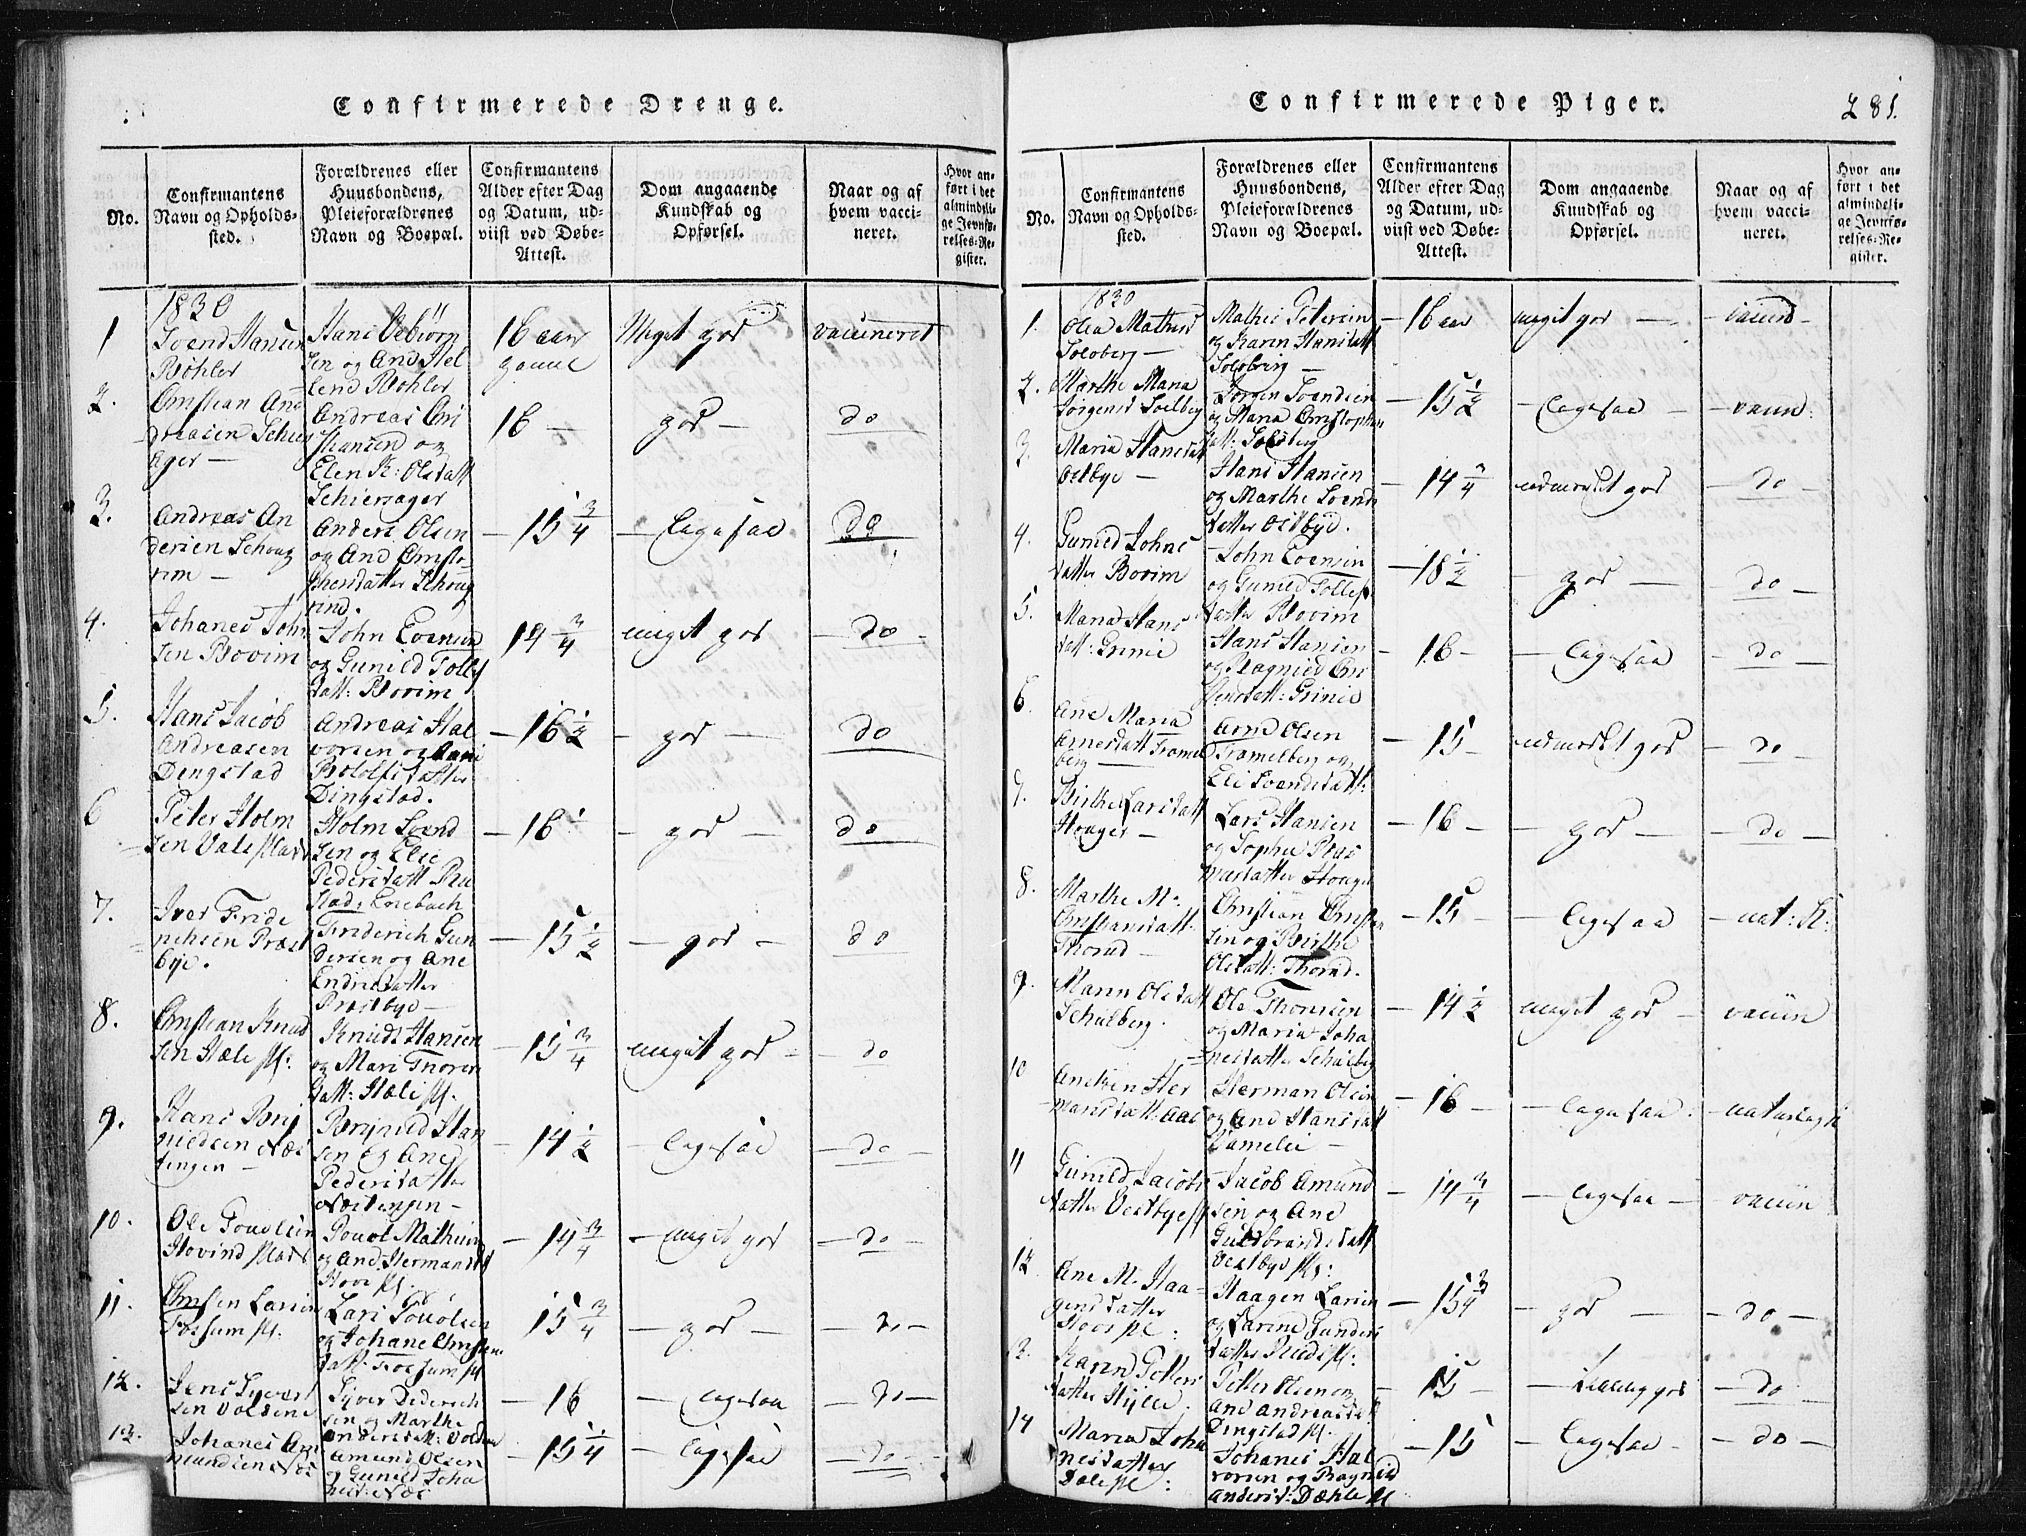 Confirmerede Drenge.
No.
Confirmantens
Navn og Opholds-
sted.
Forældrenes eller
Huusbondens,
Pleieforældrenes
Navn og Boepæl.
Confirmantens
Alder efter Dag
og Datum, ud-
viist ved Døbe-
Attest.
Dom angaaende
Kundskab og
Opførsel.
Naar og af
hvem vacci-
neret.
Hvor an-
ført i det
almindeli-
ge Jevnfø-
relses-Re-
gister.
1830
1
Svend Hansen
Bøhler
Hans Oebiørn
sen og Ane Hel
lend Bøhler
16 aar
gamel
Meget god
vaccineret
2.
Christian And
dreasen Schier
ager —
Andreas Chri
stiansen og
Elen K: Olsdatt
Schierager
16 —
god —
do
3.
Andreas An
dersen Schoug
rim —
Anders Olsen
og Ane Christo-
phersdatter Schoug
rind.
— 15 3/4
— Ligesaa
do
4.
Johanes John
sen Bovim
John Evensen
og Gunild Tolls
datt: Bovim
14 3/4
meget god
— do —
5.
Hans Jacob
Andreasen
Dingstad
Andreas Hal
vorsen og
Bololfsdatter
Dingstad.
— 16 1/2
— god —
do
6
Peter Holm
sen Vale plads
Holm Svend
sen og Elie
Pedersdatt Ru
stad, Enebach
— 16
— god —
do
7.
Iver Fride
richsen Præst
bye.
Friderich Gun
dersen og Ane
Endresdatter
Præstbye —
— 15 1/2
— god —
do
8.
Christian Knud
sen Hæle pl:
Knudt Hansen
og Mari Thorer
datt: Hæle pl.
— 15 3/4
meget god —
do
9.
Hans Brij
nildsen Næs
tingen —
Brijnild Han
sen og Ane
Pedersdatter
Næstengen —
— 14 1/2
Ligesaa
— do —
10.
Ole Poulsen
Hovind plads
Pouol Mathisen
og Ane Hermansd
Hove pl.
— 14 3/4
— meget god
— do —
11.
Christen Larsen
Fossum pl.
Lars Poulsen
og Johane Christens
datt: Fossum pl
15 3/4
— god —
— do —
12.
Jens Syver
sen Voldene
Syver Diderich
sen og Marthe
Andersdatt: Voldene
— 16
— Ligesaa
— do —
13.
Johanes Am
mundsen Næs
Amund Olsen
og Gunild Joha
nesd: Næs
— 15 1/4
— Ligesaa
— do —
Confirmerede Piger.
281.
No.
Confirmantens
Navn og Opholds-
sted.
Forældrenes eller
Huusbondens,
Pleieforældrenes
Navn og Boepæl.
Confirmantens
Alder efter Dag
og Datum, ud-
viist ved Døbe-
Attest.
Dom angaaende
Kundskab og
Opførsel.
Naar og af
hvem vacci-
neret.
Hvor an-
ført i det
almindeli-
ge Jevnfø-
relses-Re-
gister.
1830
1.
Olea Mathisd
Solberg —
Mathis Petersen
og Karen Hansdatt
Solberg —
— 16 aar
meget god —
vaccind
2.
Marthe Maria
Jørgensd Solberg
Jørgen Svendsen
og Maria Christophers
datt: Solberg
— 15 1/2
— Ligesaa —
— vaccin:
3.
Maria Hansdatt
Østbye —
Hans Hansen
og Marthe Svends
datter Østbye.
— 14 3/4
udmerket god
— do —
4.
Gunild Johns
datter Bovim
John Evensen
og Gunild Tollefs
datter Bovim
— 18 1/2
— god —
— do —
5.
Maria Hans
datt: Grinie
Hans Hansen
og Ragnild Chri
stensdatt: Grinie
— 16 —
— Ligesaa
— do —
6.
Ane Maria
Arnesdatt Tramel
berg —
Arne Olsen
Tramelberg og
Eli Svendsdatt:
— 15 —
udmerket god
— do —
7.
Birthe Larsdatt
Houger —
Lars Hansen
og Sophie Ras
musdatter Houger
— 16 —
— god —
— do —
8.
Marthe M.
Christiansdatt.
Thorud —
Christian Christen
sen og Birthe
Olsdatt: Thorud.
— 15
— Ligesaa
— nat: K:
9.
Maren Olsdatt
Schulberg.
Ole Thomsen
og Maria Joha
nesdatter Schulberg
— 14 1/2
meget god —
vaccin
10
Anelsen Her
mansdatt: Aas
Herman Olsen
og Ane Hansdatt
— 16 —
— Ligesaa.
— naturlagt
11
Gunild Jacobs
datter Vestbye pl
Jacob Amund
sen og Ane
Guldbrandsdatt
Vestbye pl:
— 14 3/4
— Ligesaa —
vaccin
12.
Ane M. Haa-
gensdatter
Hove pl:
Haagen Larsen
og Karine Gunders
datter Rudi pl:
— 15 3/4
— god —
— do —
Karen Petters
datter Hylle.
Petter Olsen og
Ane Andreasdatt
Dingstad pl.
15 —
— temmelig god
— do —
14
Maria Joha
nesdatter
Dæle pl:
Johanes Hal
vorsen og Ragnild
Andersd: Dæhle pl
— 15 —
— Ligesaa —
— do —